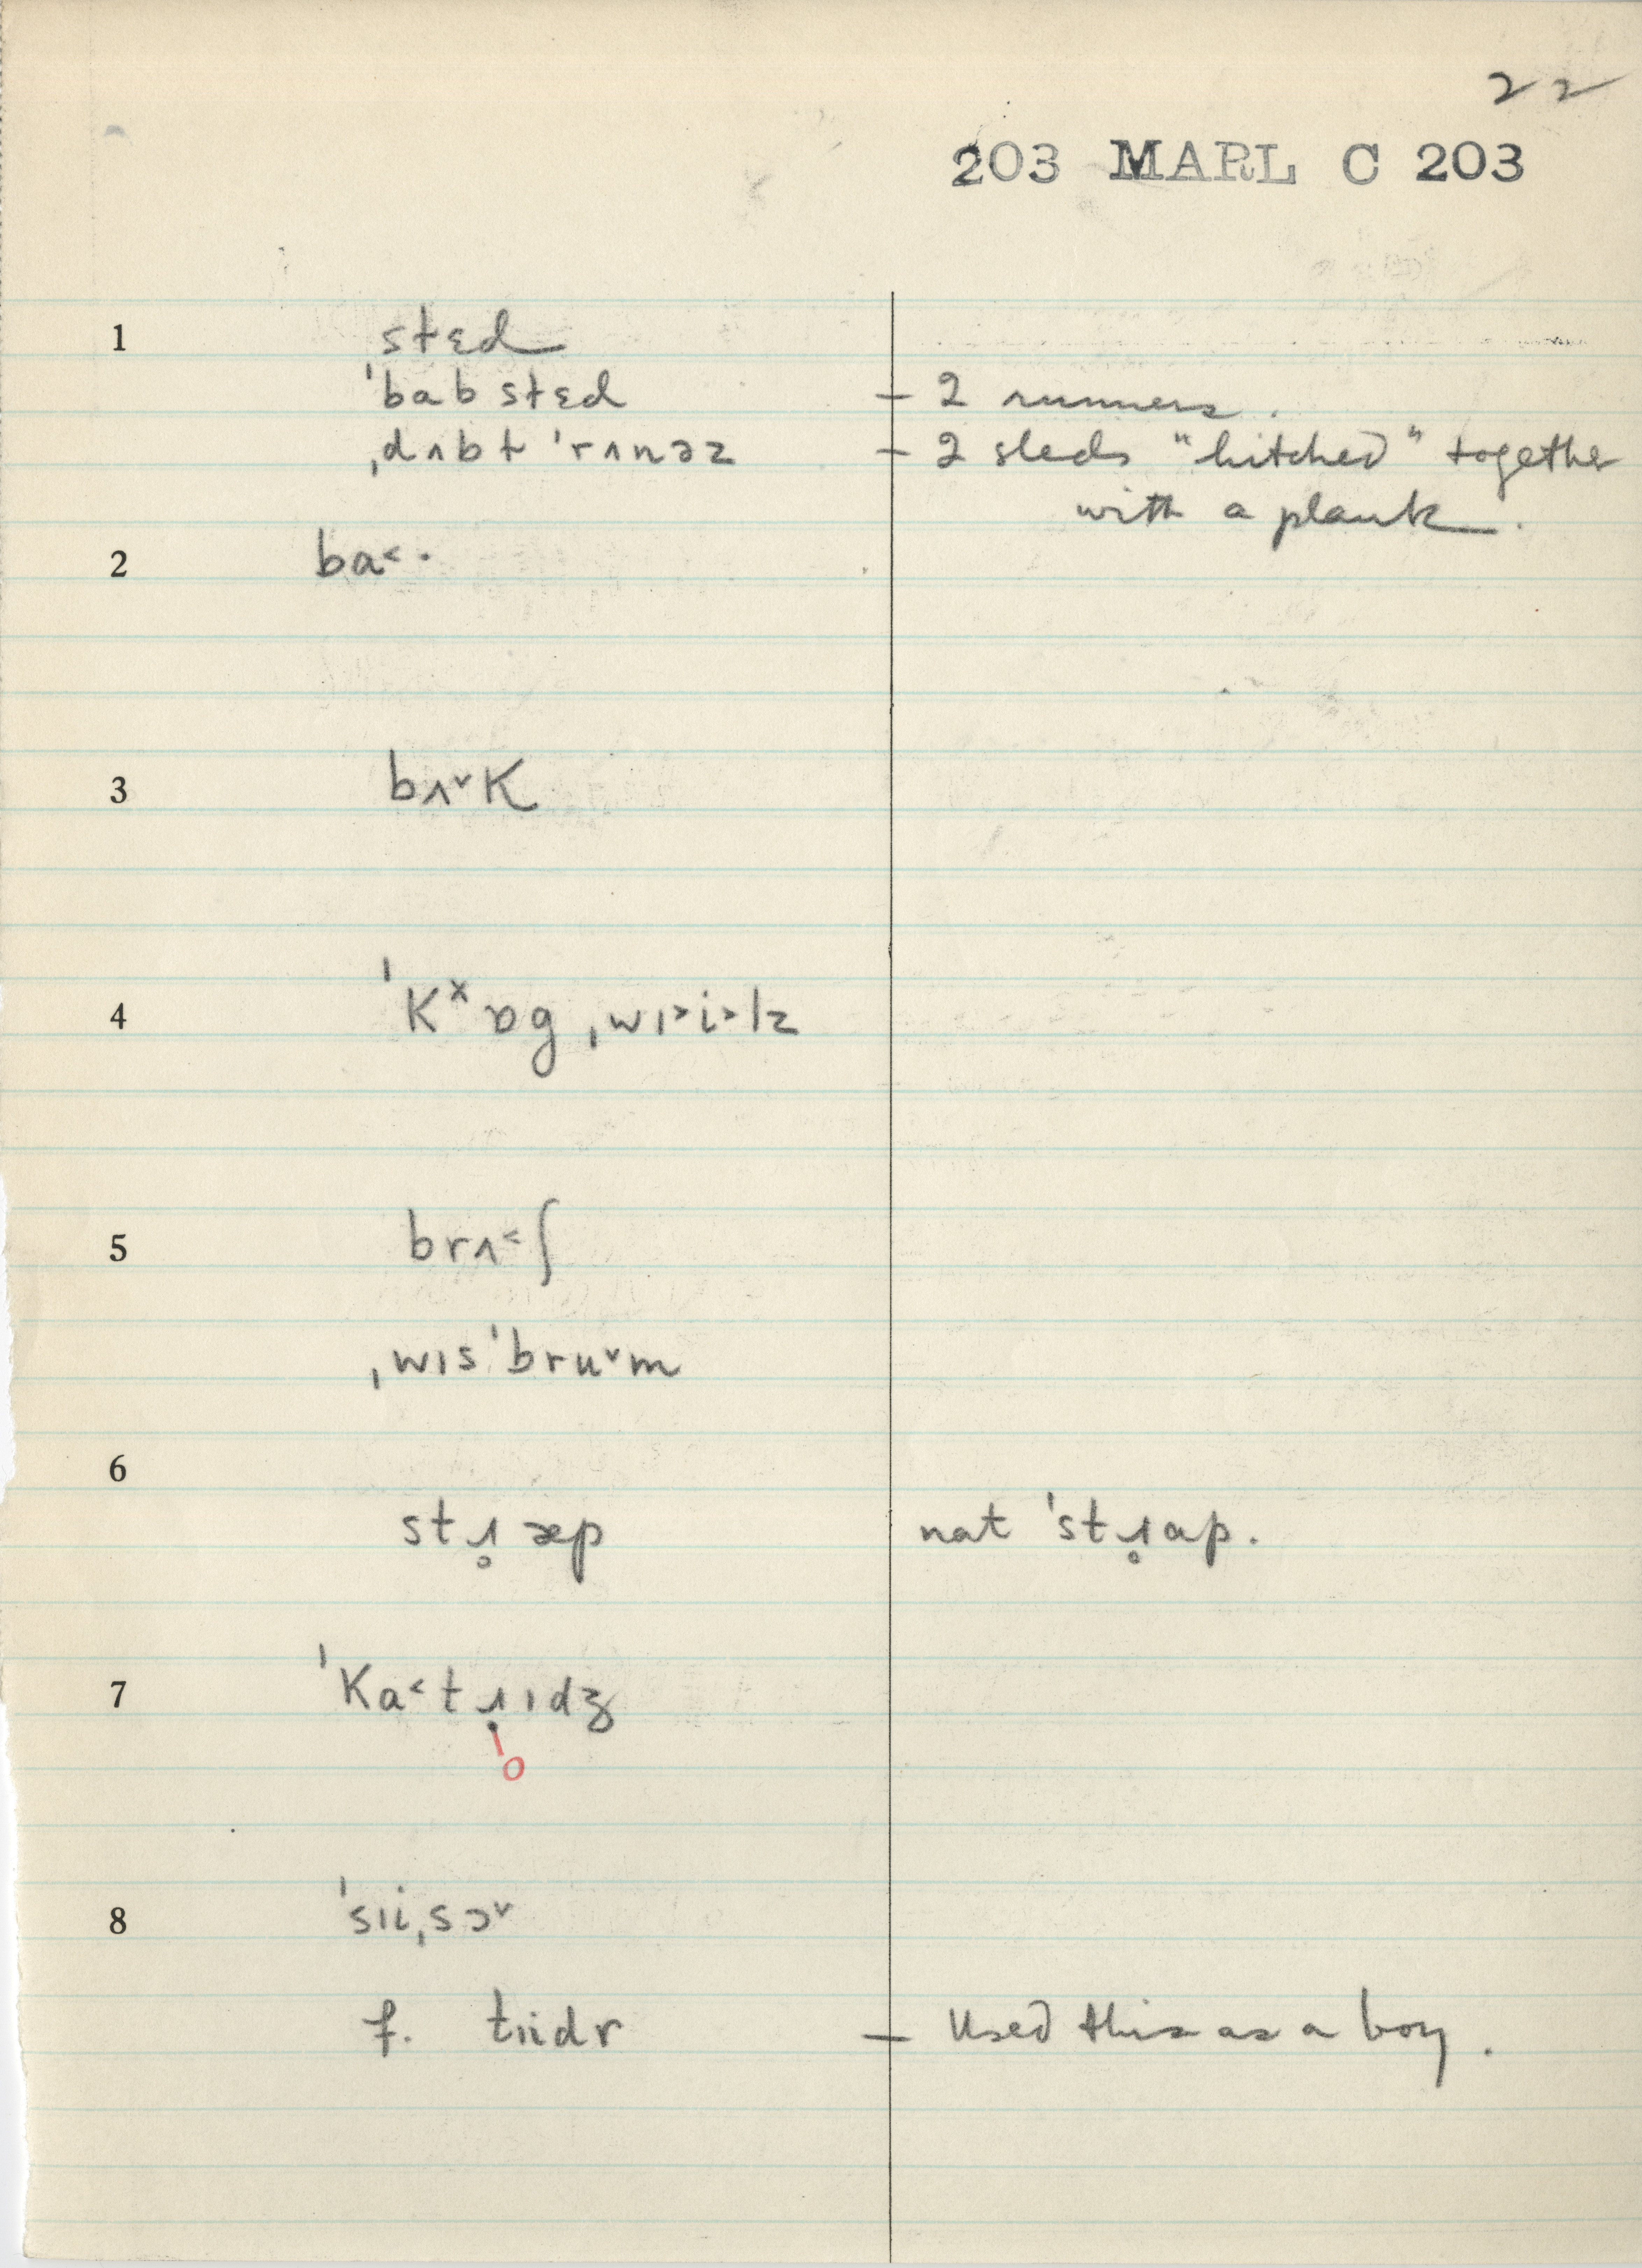 22
203 MARL C 203
1 stɛd
ˈbab stɛd – 2 runners.
ˌdʌbɫ ˈrʌnəz – 2 sleds "hitched" together
with a plank.
2 ba˂·
3 bʌ˅K
4 ˈKˣɒg ˌwɪ˃i˃lz
5 brʌ˂ʃ
ˌwɪsˈbru˅m
6
stɹ̥æp nat ˈstɹ̥ap.
7 ˈKa˂tɹ̣ɪdʒ
o
8 ˈsɪiˌsɔ˅
f. tɪidr – Used this as a boy.